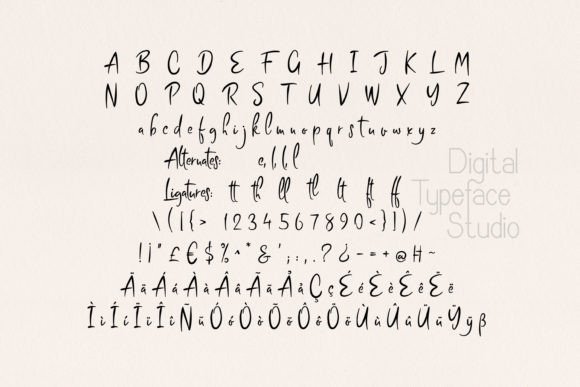 A B C D E F G H I J K L M
N O P Q R S T U V W X Y Z
a b c d e f g h i j k l m n o p q r s t u v w x y z
Alternates: e, t, l, l
Ligatures: tt th ll tl lt ft ff
\ ( | { > 1 2 3 4 5 6 7 8 9 0 < } ] ) /
! ¡ " £ € $ % ^ * & ' ; : , . ? ¿ - = + @ H ~
Digital
Typeface
Studio